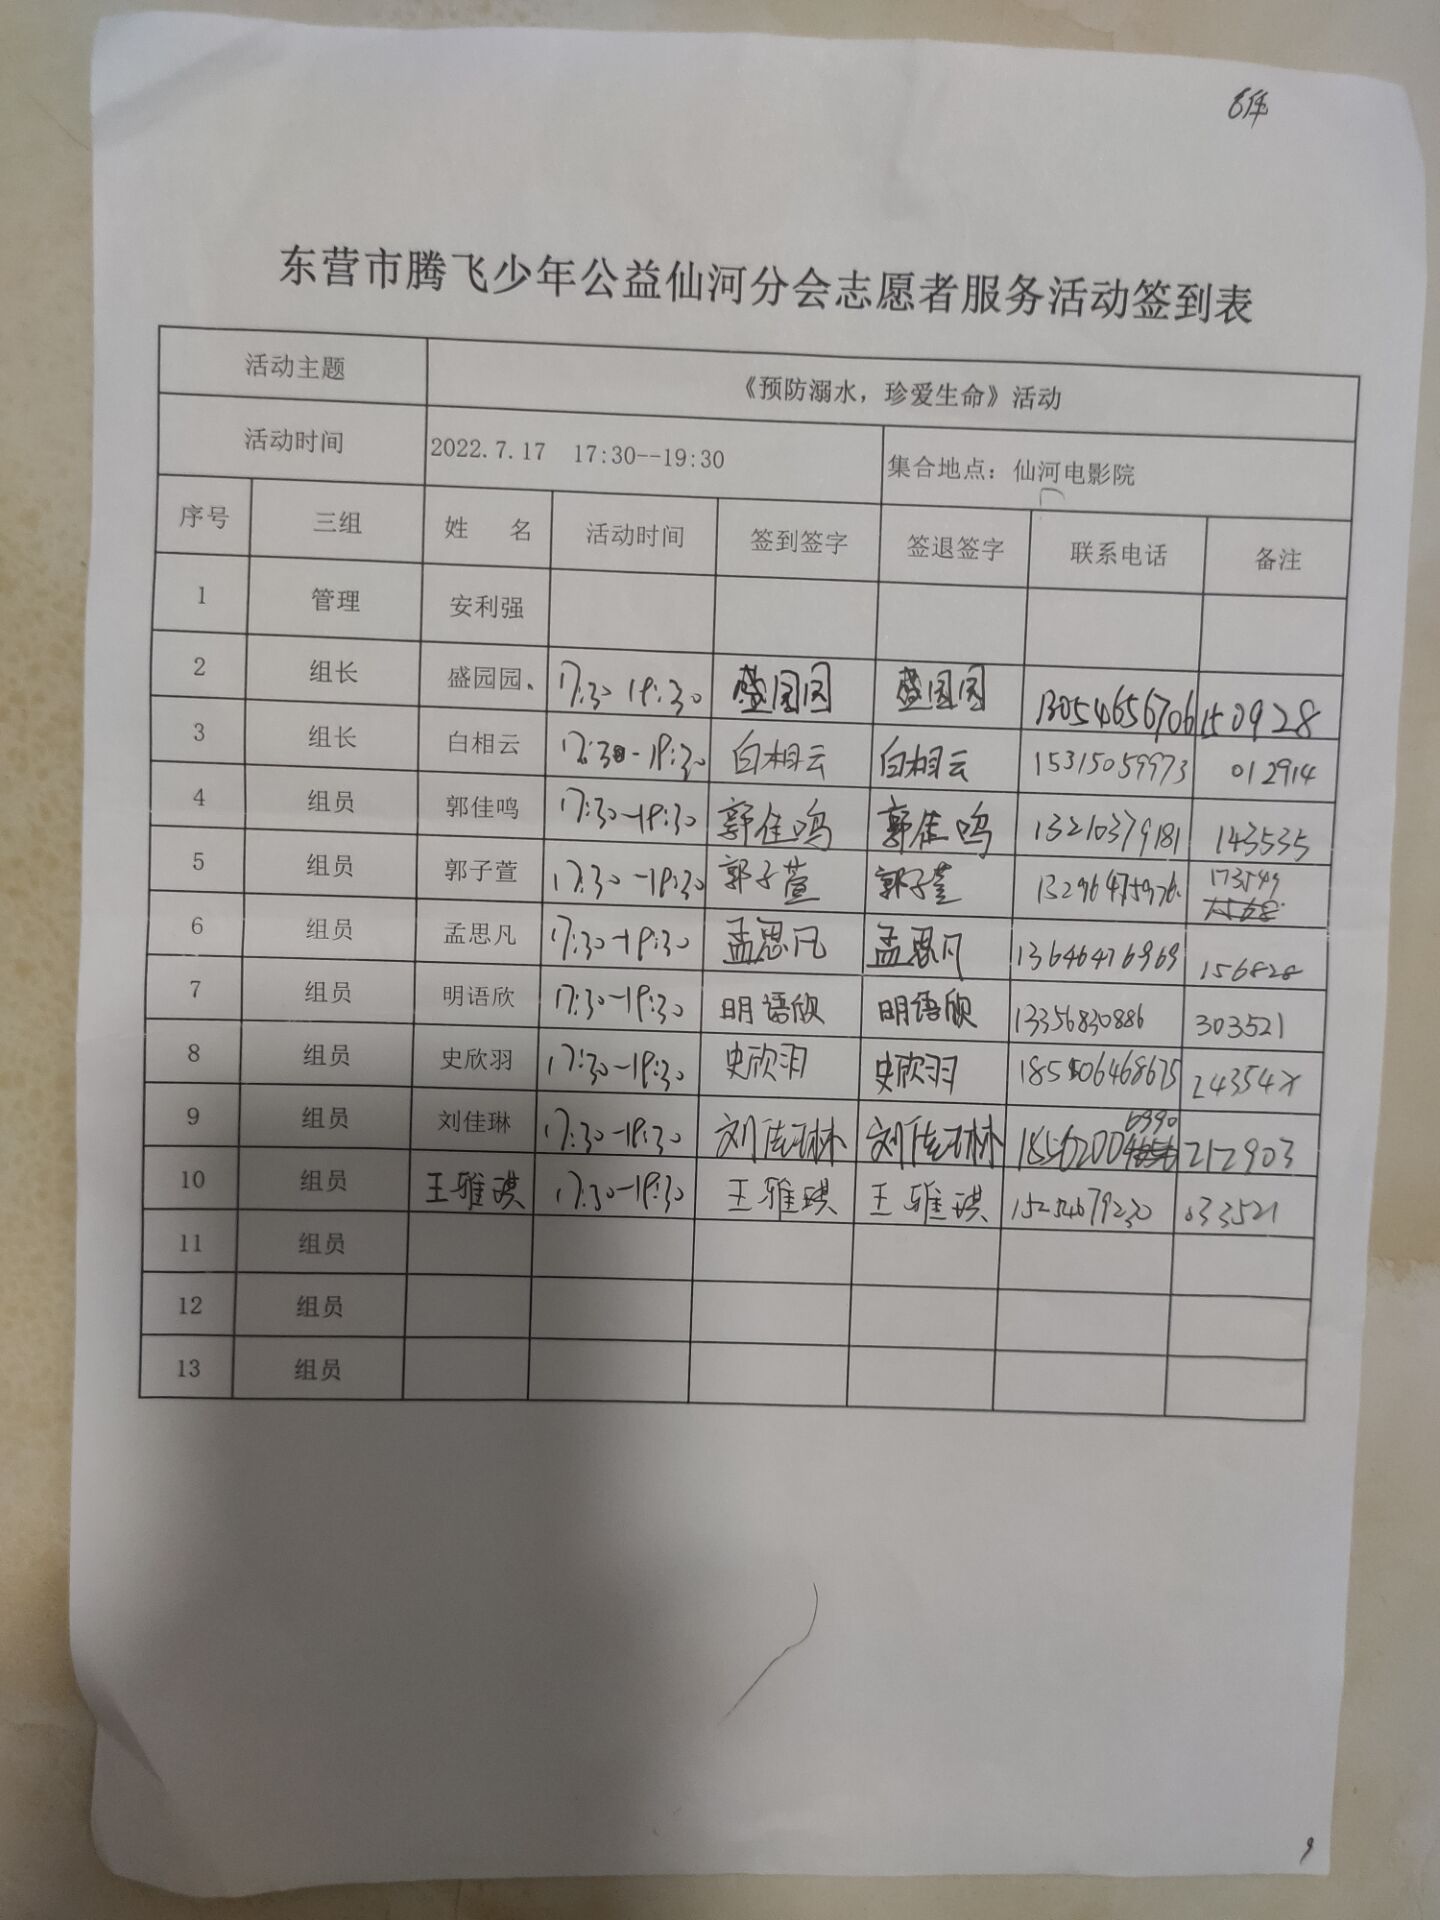 东营市腾飞少年公益仙河分会志愿者服务活动签到表
活动主题 《预防溺水，珍爱生命》活动
活动时间 2022.7.17 17:30--19:30 集合地点：仙河电影院
序号 三组 姓 名 活动时间 签到签字 签退签字 联系电话 备注
1 管理 安利强
2 组长 盛园园、 17:30 19:30 盛园园 盛园园 13054656706 150928
3 组长 白相云 17:30-19:30 白相云 白相云 15315059973 012914
4 组员 郭佳鸣 17:30-19:30 郭佳鸣 郭佳鸣 13210379181 143535
5 组员 郭子萱 17:30-19:30 郭子萱 郭子萱 13296475976. 173549
6 组员 孟思凡 17:30-19:30 孟思凡 孟思凡 13646476969 156828
7 组员 明语欣 17:30-19:30 明语欣 明语欣 13356830886 303521
8 组员 史欣羽 17:30-19:30 史欣羽 史欣羽 24354X
9 组员 刘佳琳 17:30-19:30 刘佳琳 刘佳琳 18562006990 212903
10 组员 王雅琪 17:30-19:30 王雅琪 王雅琪 15254679230 033521
11 组员
12 组员
13 组员
9